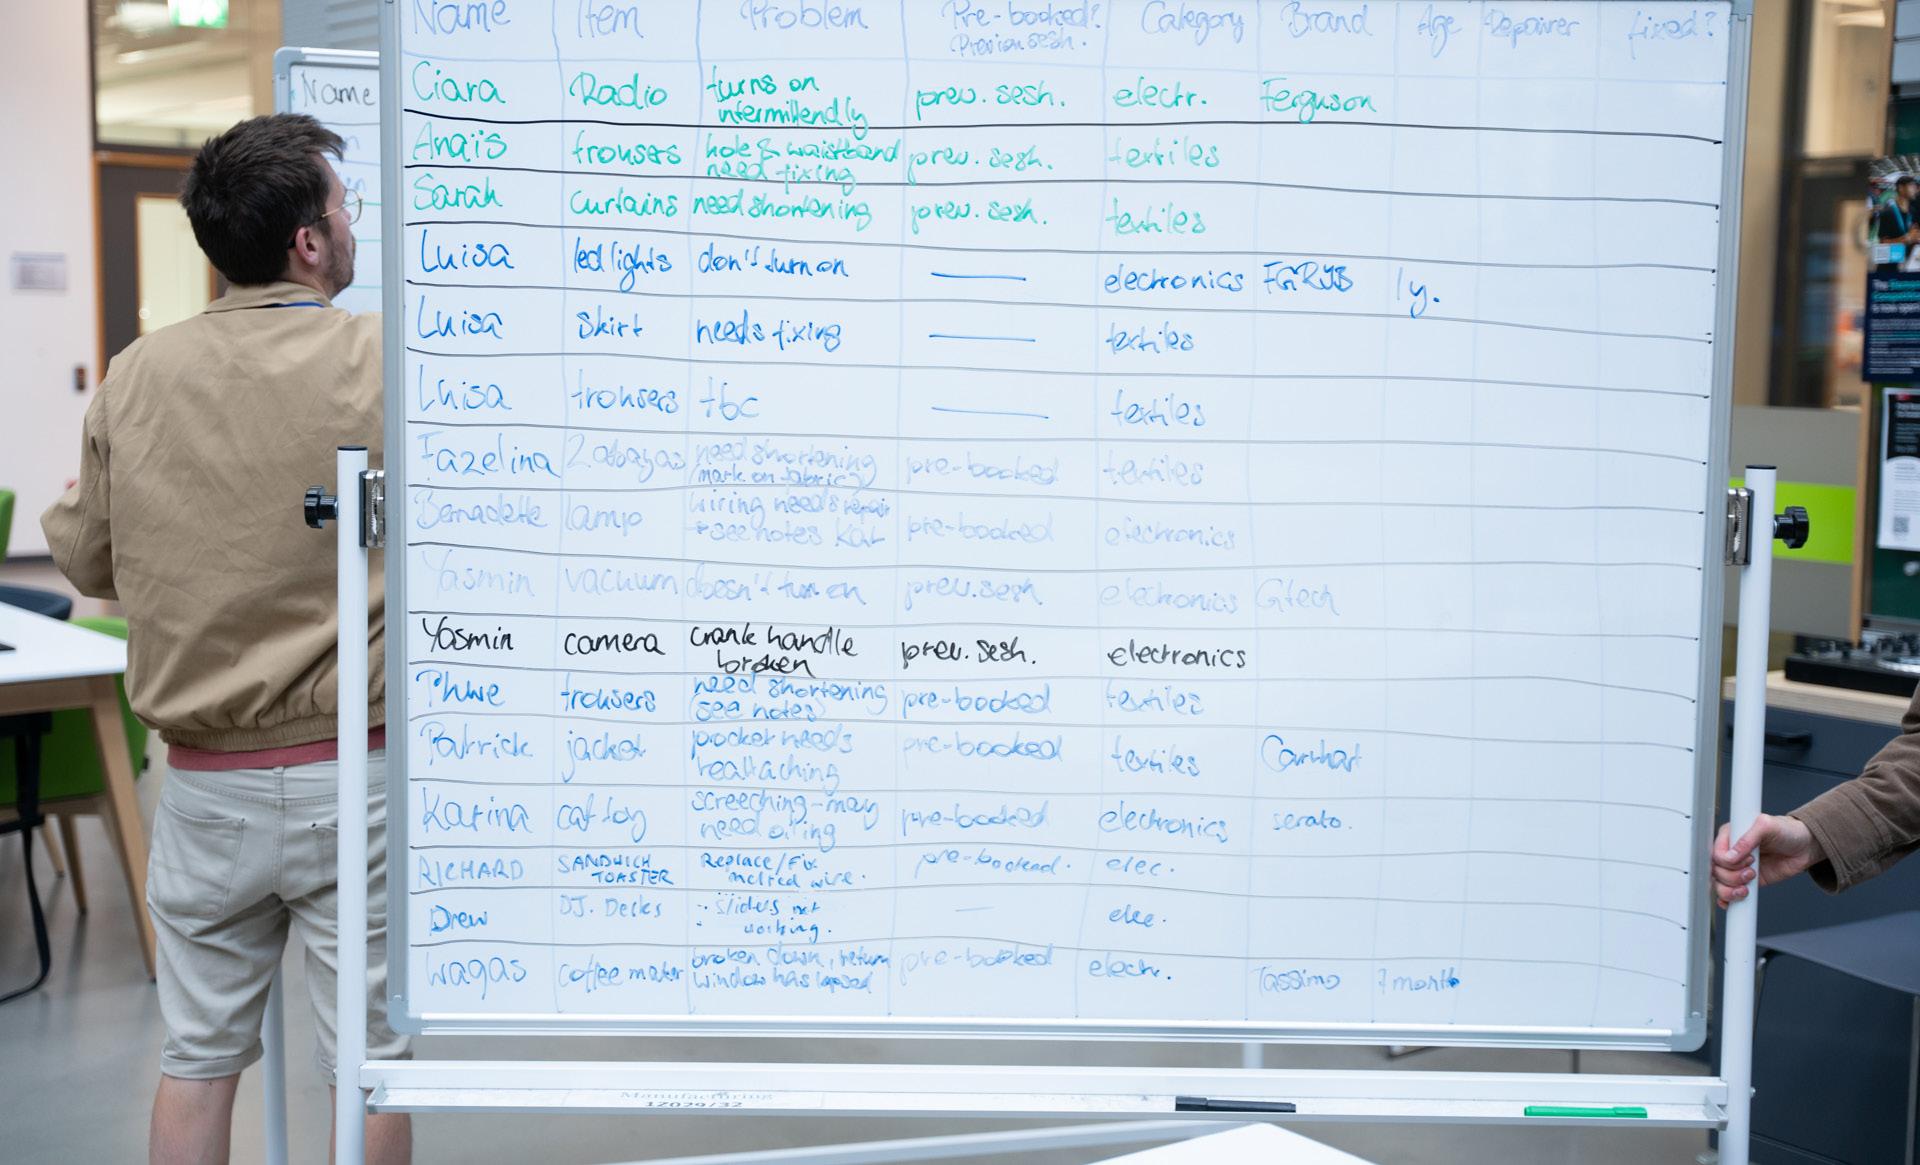 Name Item Problem Pre-booked? Category Brand Age Repairer fixed?
Previous sesh.
Name
Ciara Radio turns on intermittendly prev. sesh. electr. Ferguson
Anaïs trousers hole & waistband need fixing prev. sesh. textiles
Sarah curtains need shortening prev. sesh. textiles
Luisa led lights don't turn on — electronics 1y.
Luisa skirt needs fixing — textiles
Luisa trousers tbc — textiles
Fazelina 2 abayas need shortening (mark on fabric) pre-booked textiles
Bernadette lamp wiring needs repair → see notes Kat pre-booked electronics
Yasmin vacuum doesn't turn on prev. sesh. electronics Gtech
Yasmin camera crank handle broken prev. sesh. electronics
trousers need shortening (see notes) pre-booked textiles
Patrick jacket pocket needs reattaching pre-booked textiles Carrhart
Karina cat toy screeching - may need oiling pre-booked electronics serato.
RICHARD SANDWICH TOASTER Replace/Fix melted wire. pre-booked. elec.
Drew DJ. Decks - sliders not working. — ele.
Waqas coffee maker broken down, return window has lapsed pre-booked electr. Tassimo 7 month
Manufacturing